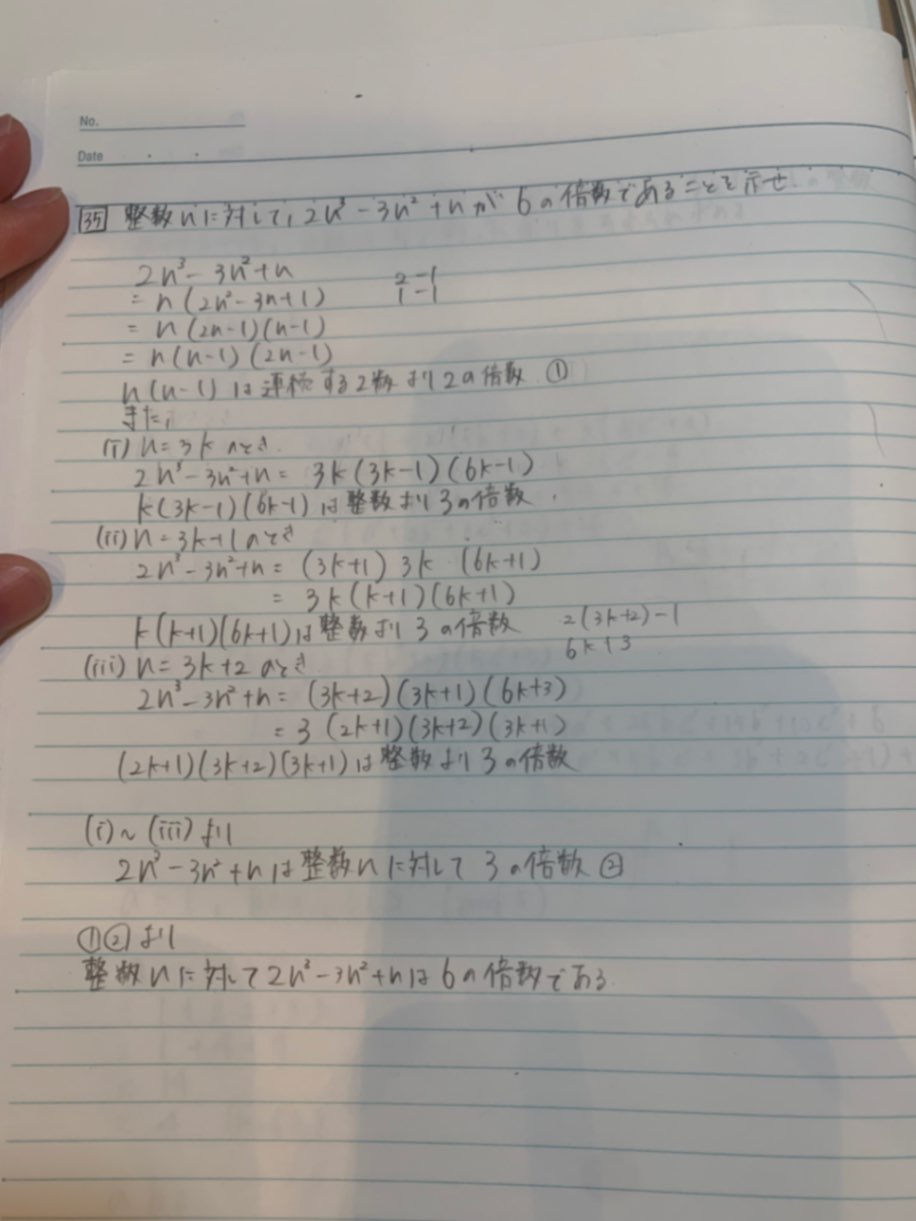 No.
Date
35 整数nに対して, 2n³-3n²+nが6の倍数であることを示せ
2n³-3n²+n
= n(2n²-3n+1)
2 -1
1 -1
= n(2n-1)(n-1)
= n(n-1)(2n-1)
n(n-1)は連続する2数より2の倍数. ①
また,
(i) n=3kのとき.
2n³-3n²+n= 3k(3k-1)(6k-1)
k(3k-1)(6k-1)は整数より3の倍数.
(ii) n=3k+1のとき
2n³-3n²+n= (3k+1) 3k (6k+1)
= 3k(k+1)(6k+1)
k(k+1)(6k+1)は整数より3の倍数
2(3k+2)-1
6k+3
(iii) n=3k+2のとき
2n³-3n²+n= (3k+2)(3k+1)(6k+3)
= 3(2k+1)(3k+2)(3k+1)
(2k+1)(3k+2)(3k+1)は整数より3の倍数
(i)~(iii)より
2n³-3n²+nは整数nに対して3の倍数②
①②より
整数nに対して2n³-3n²+nは6の倍数である.